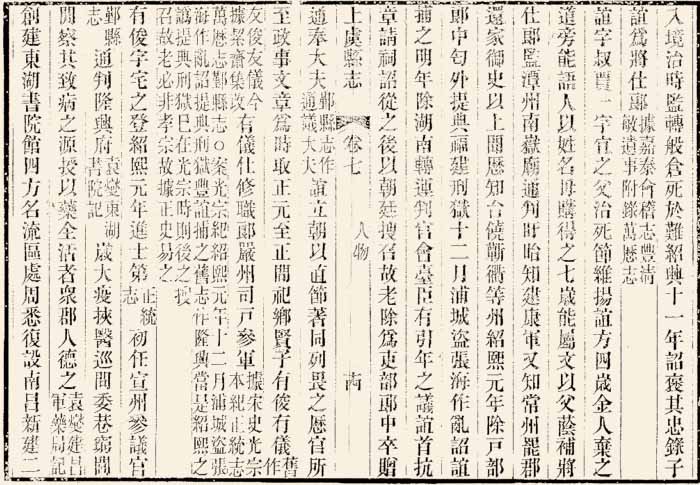 入境治時監轉般倉死於難紹興十一年詔褒其忠錄子
誼爲將仕郎據嘉泰會稽志豐清敏遺事附錄萬歷志
誼字叔賈一字宜之父治死節維揚誼方四歲金人棄之
道旁能語人以姓名毋購得之七歲能屬文以父蔭補將
仕郎監潭州南嶽廟通判盱眙知建康軍又知常州罷郡
還家御史以上聞歷知台饒衢衢等州紹熙元年除戸部
郎中匄外提典福建刑獄十二月浦城盜張海作亂詔誼
捕之明年除湖南轉運判官會臺臣有引年之議誼首抗
章請祠詔從之後以朝廷搜召故老除爲吏部郎中卒贈
上虞縣志 卷七 人物
通奉大夫鄞縣志作通議大夫誼立朝以直節著同列畏之歷官所
至政事文章爲時取正元至正間祀鄉賢子有俊有儀舊作
友俊友儀今據絜齋集改有儀仕修職郎嚴州司戸參軍據宋史光宗本紀正統志
萬歷志鄞縣志○案光宗紀紹熙元年十二月浦城盜張
海作亂詔提典刑獄豐誼捕之舊志作隆興當是紹熙之
譌提典刑獄巳在光宗時則後之授
召故老必非孝宗故據正史易之
有俊字宅之登紹熙元年進士第正統志初任宣州參議官
鄞縣志通判隆興府袁燮東湖書院記歲大疫挾醫巡問委巷窮閻
問察其致病之源授以藥全活者衆郡人德之袁燮建昌軍藥局記
創建東湖書院館四方名流區處周悉復設南昌新建二